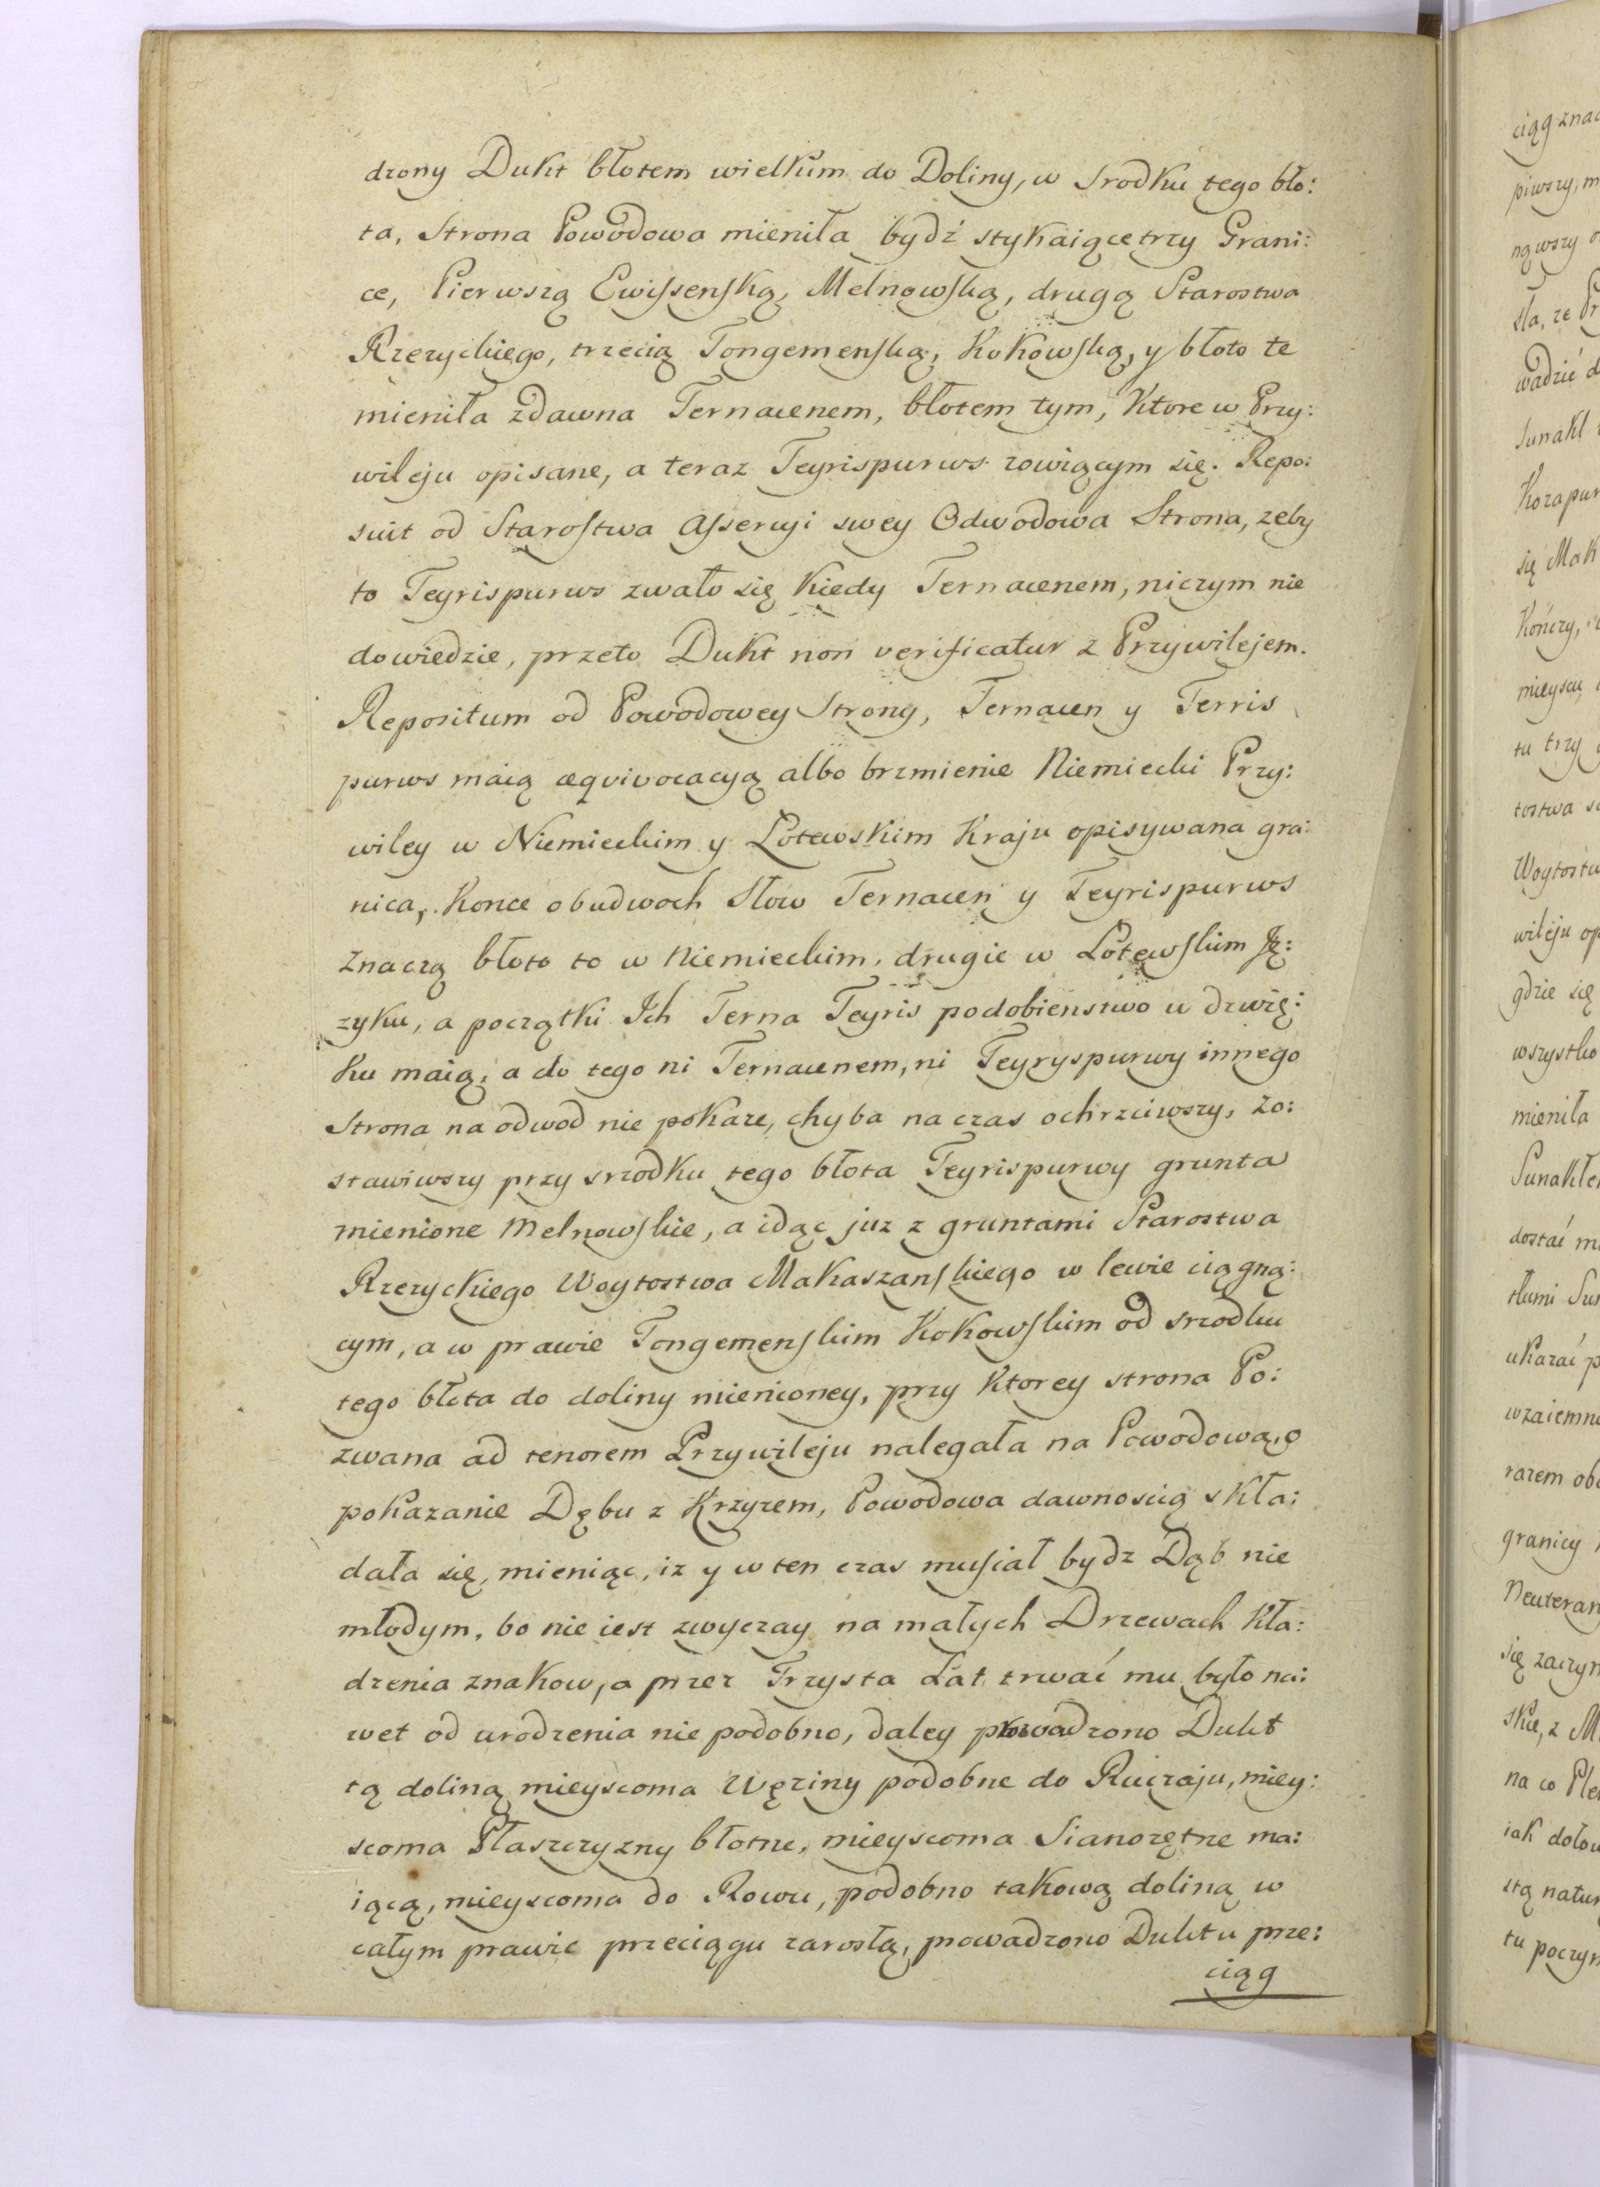 drony Dukt błotem wielkim do Doliny, w srodku tego bło:
ta, Strona Powodowa mieniła bydź stykaiące trzy Grani:
ce, Pierwszą Ewissenską, Melnowską, drugą Starostwa
Rzezyckiego, trzecią Tongemenską, Kokowską, y błoto te
mieniła zdawna Ternacenem, błotem tym, Ktore w Przy:
wileju opisane, a teraz Teyrispurws zowiącym się. Repo:
suit od Starostwa Assercyi swey Odwodowa Strona, zeby
to Teyrispurws zwało się kiedy Ternacenem, niczym nie
dowiedzie, przeto Dukt non verificatur z Przywilejem.
Repositum od Powodowey Strony, Ternacen y Terris
purws maią æqvivocacyą albo brzmienie Niemiecki Przy:
wiley w Niemieckim y Lotewskim Kraju opisywana gra:
nica, Konce obudwoch Słow Ternacen y Teyrispurws
Znaczą błoto to w Niemieckim, drugie w Lotewskim Ję:
zyku, a początki Ich Terna Teyris podobienstwo w dzwię:
ku maią, a do tego ni Ternacenem, ni Teyryspurwy innego
Strona na odwod nie pokaze, chyba na czas ochrzciwszy, Zo:
stawiwszy przy srzodku tego błota Teyrispurwy grunta
mienione Melnowskie, a idąc juz z gruntami Starostwa
Rzezyckiego Woytostwa Makaszanskiego w lewie ciągną:
cym, a w prawie Tongemenskim Kokowskim od srzodku
tego błota do doliny mienioney, przy Ktorey strona Po:
zwana ad tenorem Przywileju nalegała na Powodową, o
pokazanie Dębu z Krzyzem, Powodowa dawnoscią skła:
dała się, mieniąc, iz y w ten czas musiał bydz Dąb nie
młodym, bo nie iest zwyczay na małych Drzewach Kła:
dzenia znakow, a przez Trzysta Lat trwać mu było na:
wet od urodzenia nie podobno, daley prowadzono Dukt
tą doliną mieyscoma Węziny podobne do Ruczaju, miey:
scoma Płaszczyzny błotne, mieyscoma Sianozętne ma:
iącą, mieyscoma do Rowu, podobno takową doliną w
całym prawie przeciągu zarosłą, prowadzono Duktu prze:
ciąg